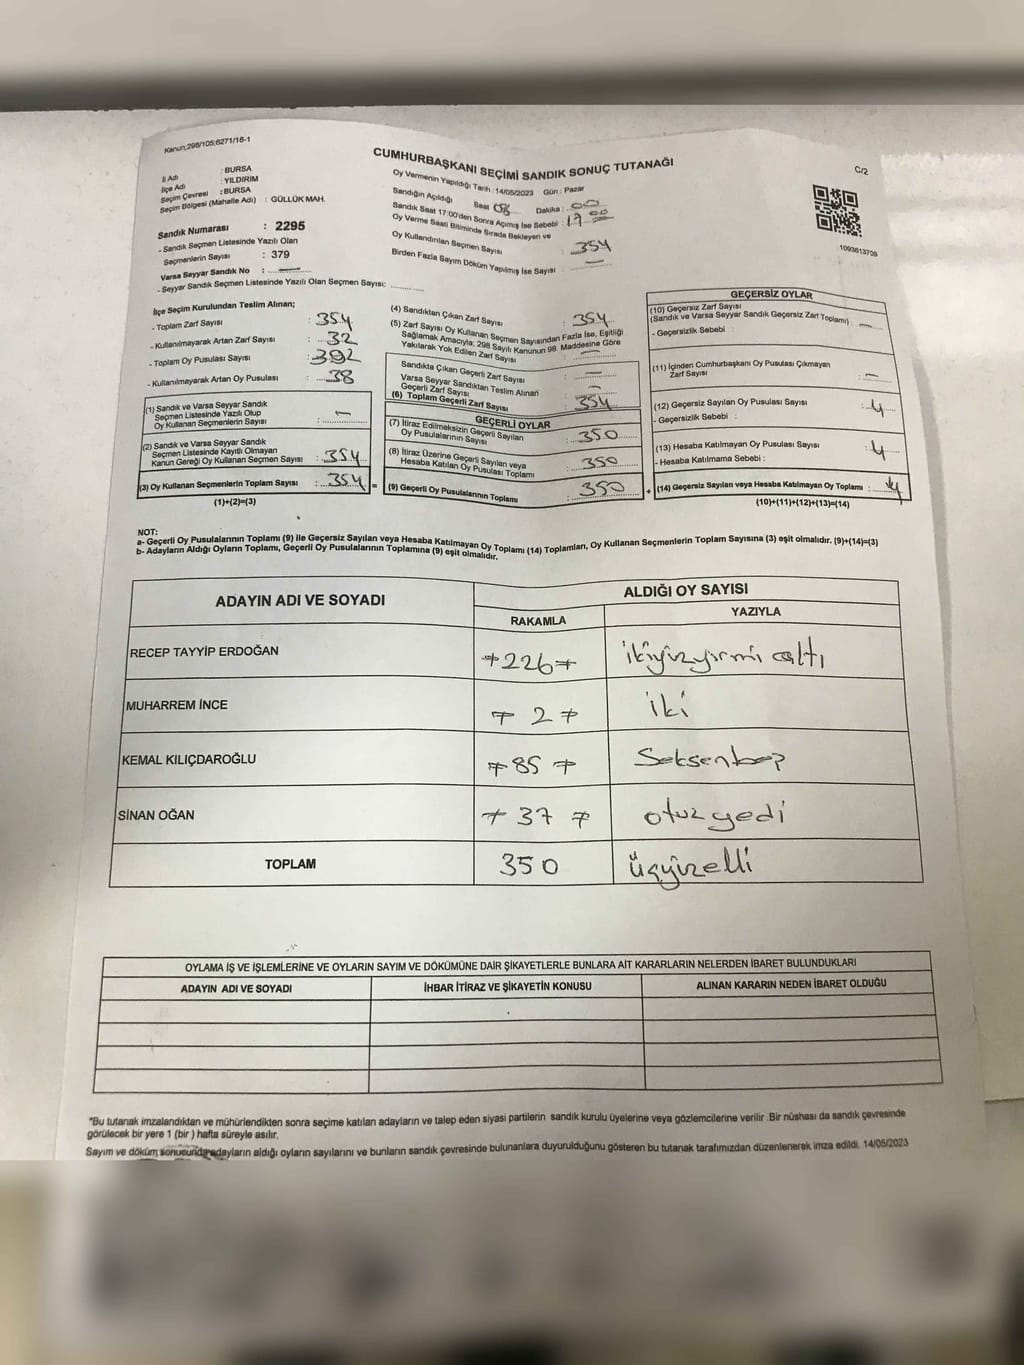 Kanun;298/105;6271/18-1
CUMHURBAŞKANI SEÇİMİ SANDIK SONUÇ TUTANAĞI
C/2
İl Adı : BURSA
İlçe Adı : YILDIRIM
Seçim Çevresi : BURSA
Seçim Bölgesi (Mahalle Adı) : GÜLLÜK MAH.
Sandık Numarası : 2295
- Sandık Seçmen Listesinde Yazılı Olan
Seçmenlerin Sayısı : 379
Varsa Seyyar Sandık No : —
- Seyyar Sandık Seçmen Listesinde Yazılı Olan Seçmen Sayısı:
Oy Vermenin Yapıldığı Tarih : 14/05/2023 Gün : Pazar
Sandığın Açıldığı Saat 08 Dakika : 00
Sandık Saat 17:00'den Sonra Açımış İse Sebebi : 17 00
Oy Verme Saati Bitiminde Sırada Bekleyen ve
Oy Kullandırılan Seçmen Sayısı : 354
Birden Fazla Sayım Döküm Yapılmış İse Sayısı : —
1093613709
İlçe Seçim Kurulundan Teslim Alınan;
- Toplam Zarf Sayısı : 354
- Kullanılmayarak Artan Zarf Sayısı : 32
- Toplam Oy Pusulası Sayısı : 392
- Kullanılmayarak Artan Oy Pusulası : 38
(1) Sandık ve Varsa Seyyar Sandık
Seçmen Listesinde Yazılı Olup
Oy Kullanan Seçmenlerin Sayısı : —
(2) Sandık ve Varsa Seyyar Sandık
Seçmen Listesinde Kayıtlı Olmayan
Kanun Gereği Oy Kullanan Seçmen Sayısı : 354
(3) Oy Kullanan Seçmenlerin Toplam Sayısı : 354 =
(1)+(2)=(3)
(4) Sandıktan Çıkan Zarf Sayısı : 354
(5) Zarf Sayısı Oy Kullanan Seçmen Sayısından Fazla İse, Eşitliği
Sağlamak Amacıyla; 298 Sayılı Kanunun 98. Maddesine Göre
Yakılarak Yok Edilen Zarf Sayısı : —
Sandıkta Çıkan Geçerli Zarf Sayısı : —
Varsa Seyyar Sandıktan Teslim Alınan
Geçerli Zarf Sayısı : —
(6) Toplam Geçerli Zarf Sayısı : 354
GEÇERLİ OYLAR
(7) İtiraz Edilmeksizin Geçerli Sayılan
Oy Pusulalarının Sayısı : 350
(8) İtiraz Üzerine Geçerli Sayılan veya
Hesaba Katılan Oy Pusulası Toplamı : 350
(9) Geçerli Oy Pusulalarının Toplamı : 350 +
GEÇERSİZ OYLAR
(10) Geçersiz Zarf Sayısı
(Sandık ve Varsa Seyyar Sandık Geçersiz Zarf Toplamı) : —
- Geçersizlik Sebebi :
(11) İçinden Cumhurbaşkanı Oy Pusulası Çıkmayan
Zarf Sayısı : —
(12) Geçersiz Sayılan Oy Pusulası Sayısı : 4
- Geçersizlik Sebebi :
(13) Hesaba Katılmayan Oy Pusulası Sayısı : 4
- Hesaba Katılmama Sebebi :
(14) Geçersiz Sayılan veya Hesaba Katılmayan Oy Toplamı : 4
(10)+(11)+(12)+(13)=(14)
NOT:
a- Geçerli Oy Pusulalarının Toplamı (9) ile Geçersiz Sayılan veya Hesaba Katılmayan Oy Toplamı (14) Toplamları, Oy Kullanan Seçmenlerin Toplam Sayısına (3) eşit olmalıdır. (9)+(14)=(3)
b- Adayların Aldığı Oyların Toplamı, Geçerli Oy Pusulalarının Toplamına (9) eşit olmalıdır.
ADAYIN ADI VE SOYADI
ALDIĞI OY SAYISI
RAKAMLA YAZIYLA
RECEP TAYYİP ERDOĞAN 226 ikiyüzyirmi altı
MUHARREM İNCE 2 iki
KEMAL KILIÇDAROĞLU 85 Seksenbeş
SİNAN OĞAN 37 otuz yedi
TOPLAM 350 üçyüzelli
OYLAMA İŞ VE İŞLEMLERİNE VE OYLARIN SAYIM VE DÖKÜMÜNE DAİR ŞİKAYETLERLE BUNLARA AİT KARARLARIN NELERDEN İBARET BULUNDUKLARI
ADAYIN ADI VE SOYADI İHBAR İTİRAZ VE ŞİKAYETİN KONUSU ALINAN KARARIN NEDEN İBARET OLDUĞU
*Bu tutanak imzalandıktan ve mühürlendikten sonra seçime katılan adayların ve talep eden siyasi partilerin sandık kurulu üyelerine veya gözlemcilerine verilir .Bir nüshası da sandık çevresinde
görülecek bir yere 1 (bir ) hafta süreyle asılır.
Sayım ve döküm sonucunda adayların aldığı oyların sayılarını ve bunların sandık çevresinde bulunanlara duyurulduğunu gösteren bu tutanak tarafımızdan düzenlenerek imza edildi. 14/05/2023